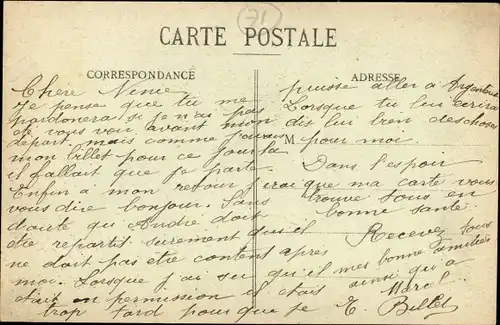 71
CARTE POSTALE
CORRESPONDANCE
ADRESSE
Chère
Je pense que tu me
pardonnera si je n'ai pas
de vous voir avant mon
départ, mais comme j'avais
mon billet pour ce jour là
il fallait que je parte.
Enfin a mon retour j'irai
vous dire bonjour. Sans
doute qu'André doit
être repartit surement qu'il
ne doit pas être content après
moi. Lorsque j'ai su qu'il
était en permission il était
trop tard pour que je
puisse aller a
Lorsque tu lui écrira
dis lui bien des choses
M pour moi.
Dans l'espoir
que ma carte vous
trouve tous en
bonne santé.
Recevez tous
mes bonne familiés
ainsi qu'a
E. Billet